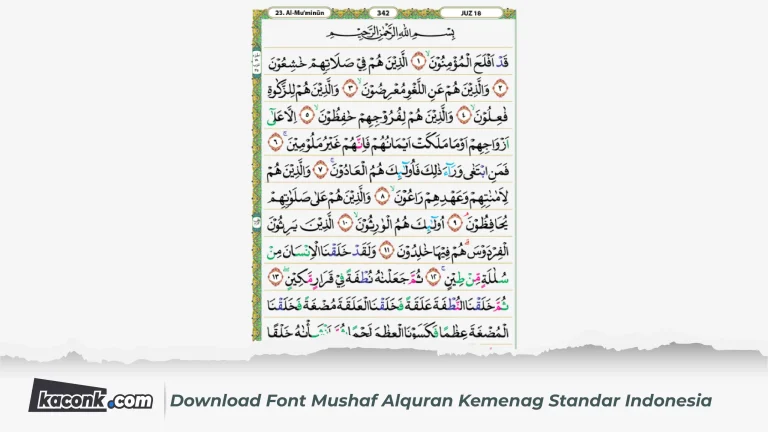 23. Al-Mu'minūn 342 JUZ 18
بِسْمِ اللّٰهِ الرَّحْمٰنِ الرَّحِيْمِ
قَدْ اَفْلَحَ الْمُؤْمِنُوْنَۙ ١ الَّذِيْنَ هُمْ فِيْ صَلَاتِهِمْ خٰشِعُوْنَ
٢ وَالَّذِيْنَ هُمْ عَنِ اللَّغْوِ مُعْرِضُوْنَۙ ٣ وَالَّذِيْنَ هُمْ لِلزَّكٰوةِ
فٰعِلُوْنَۙ ٤ وَالَّذِيْنَ هُمْ لِفُرُوْجِهِمْ حٰفِظُوْنَۙ ٥ اِلَّا عَلٰٓى
اَزْوَاجِهِمْ اَوْ مَا مَلَكَتْ اَيْمَانُهُمْ فَاِنَّهُمْ غَيْرُ مَلُوْمِيْنَۚ ٦
فَمَنِ ابْتَغٰى وَرَاۤءَ ذٰلِكَ فَاُولٰۤىِٕكَ هُمُ الْعَادُوْنَۚ ٧ وَالَّذِيْنَ هُمْ
لِاَمٰنٰتِهِمْ وَعَهْدِهِمْ رَاعُوْنَۙ ٨ وَالَّذِيْنَ هُمْ عَلٰى صَلَوٰتِهِمْ
يُحَافِظُوْنَۘ ٩ اُولٰۤىِٕكَ هُمُ الْوٰرِثُوْنَۙ ١٠ الَّذِيْنَ يَرِثُوْنَ
الْفِرْدَوْسَۗ هُمْ فِيْهَا خٰلِدُوْنَ ١١ وَلَقَدْ خَلَقْنَا الْاِنْسَانَ مِنْ
سُلٰلَةٍ مِّنْ طِيْنٍۚ ١٢ ثُمَّ جَعَلْنٰهُ نُطْفَةً فِيْ قَرَارٍ مَّكِيْنٍۖ ١٣
ثُمَّ خَلَقْنَا النُّطْفَةَ عَلَقَةً فَخَلَقْنَا الْعَلَقَةَ مُضْغَةً فَخَلَقْنَا
الْمُضْغَةَ عِظٰمًا فَكَسَوْنَا الْعِظٰمَ لَحْمًا ثُمَّ اَنْشَأْنٰهُ خَلْقًا
kaconk.com
Download Font Mushaf Alquran Kemenag Standar Indonesia